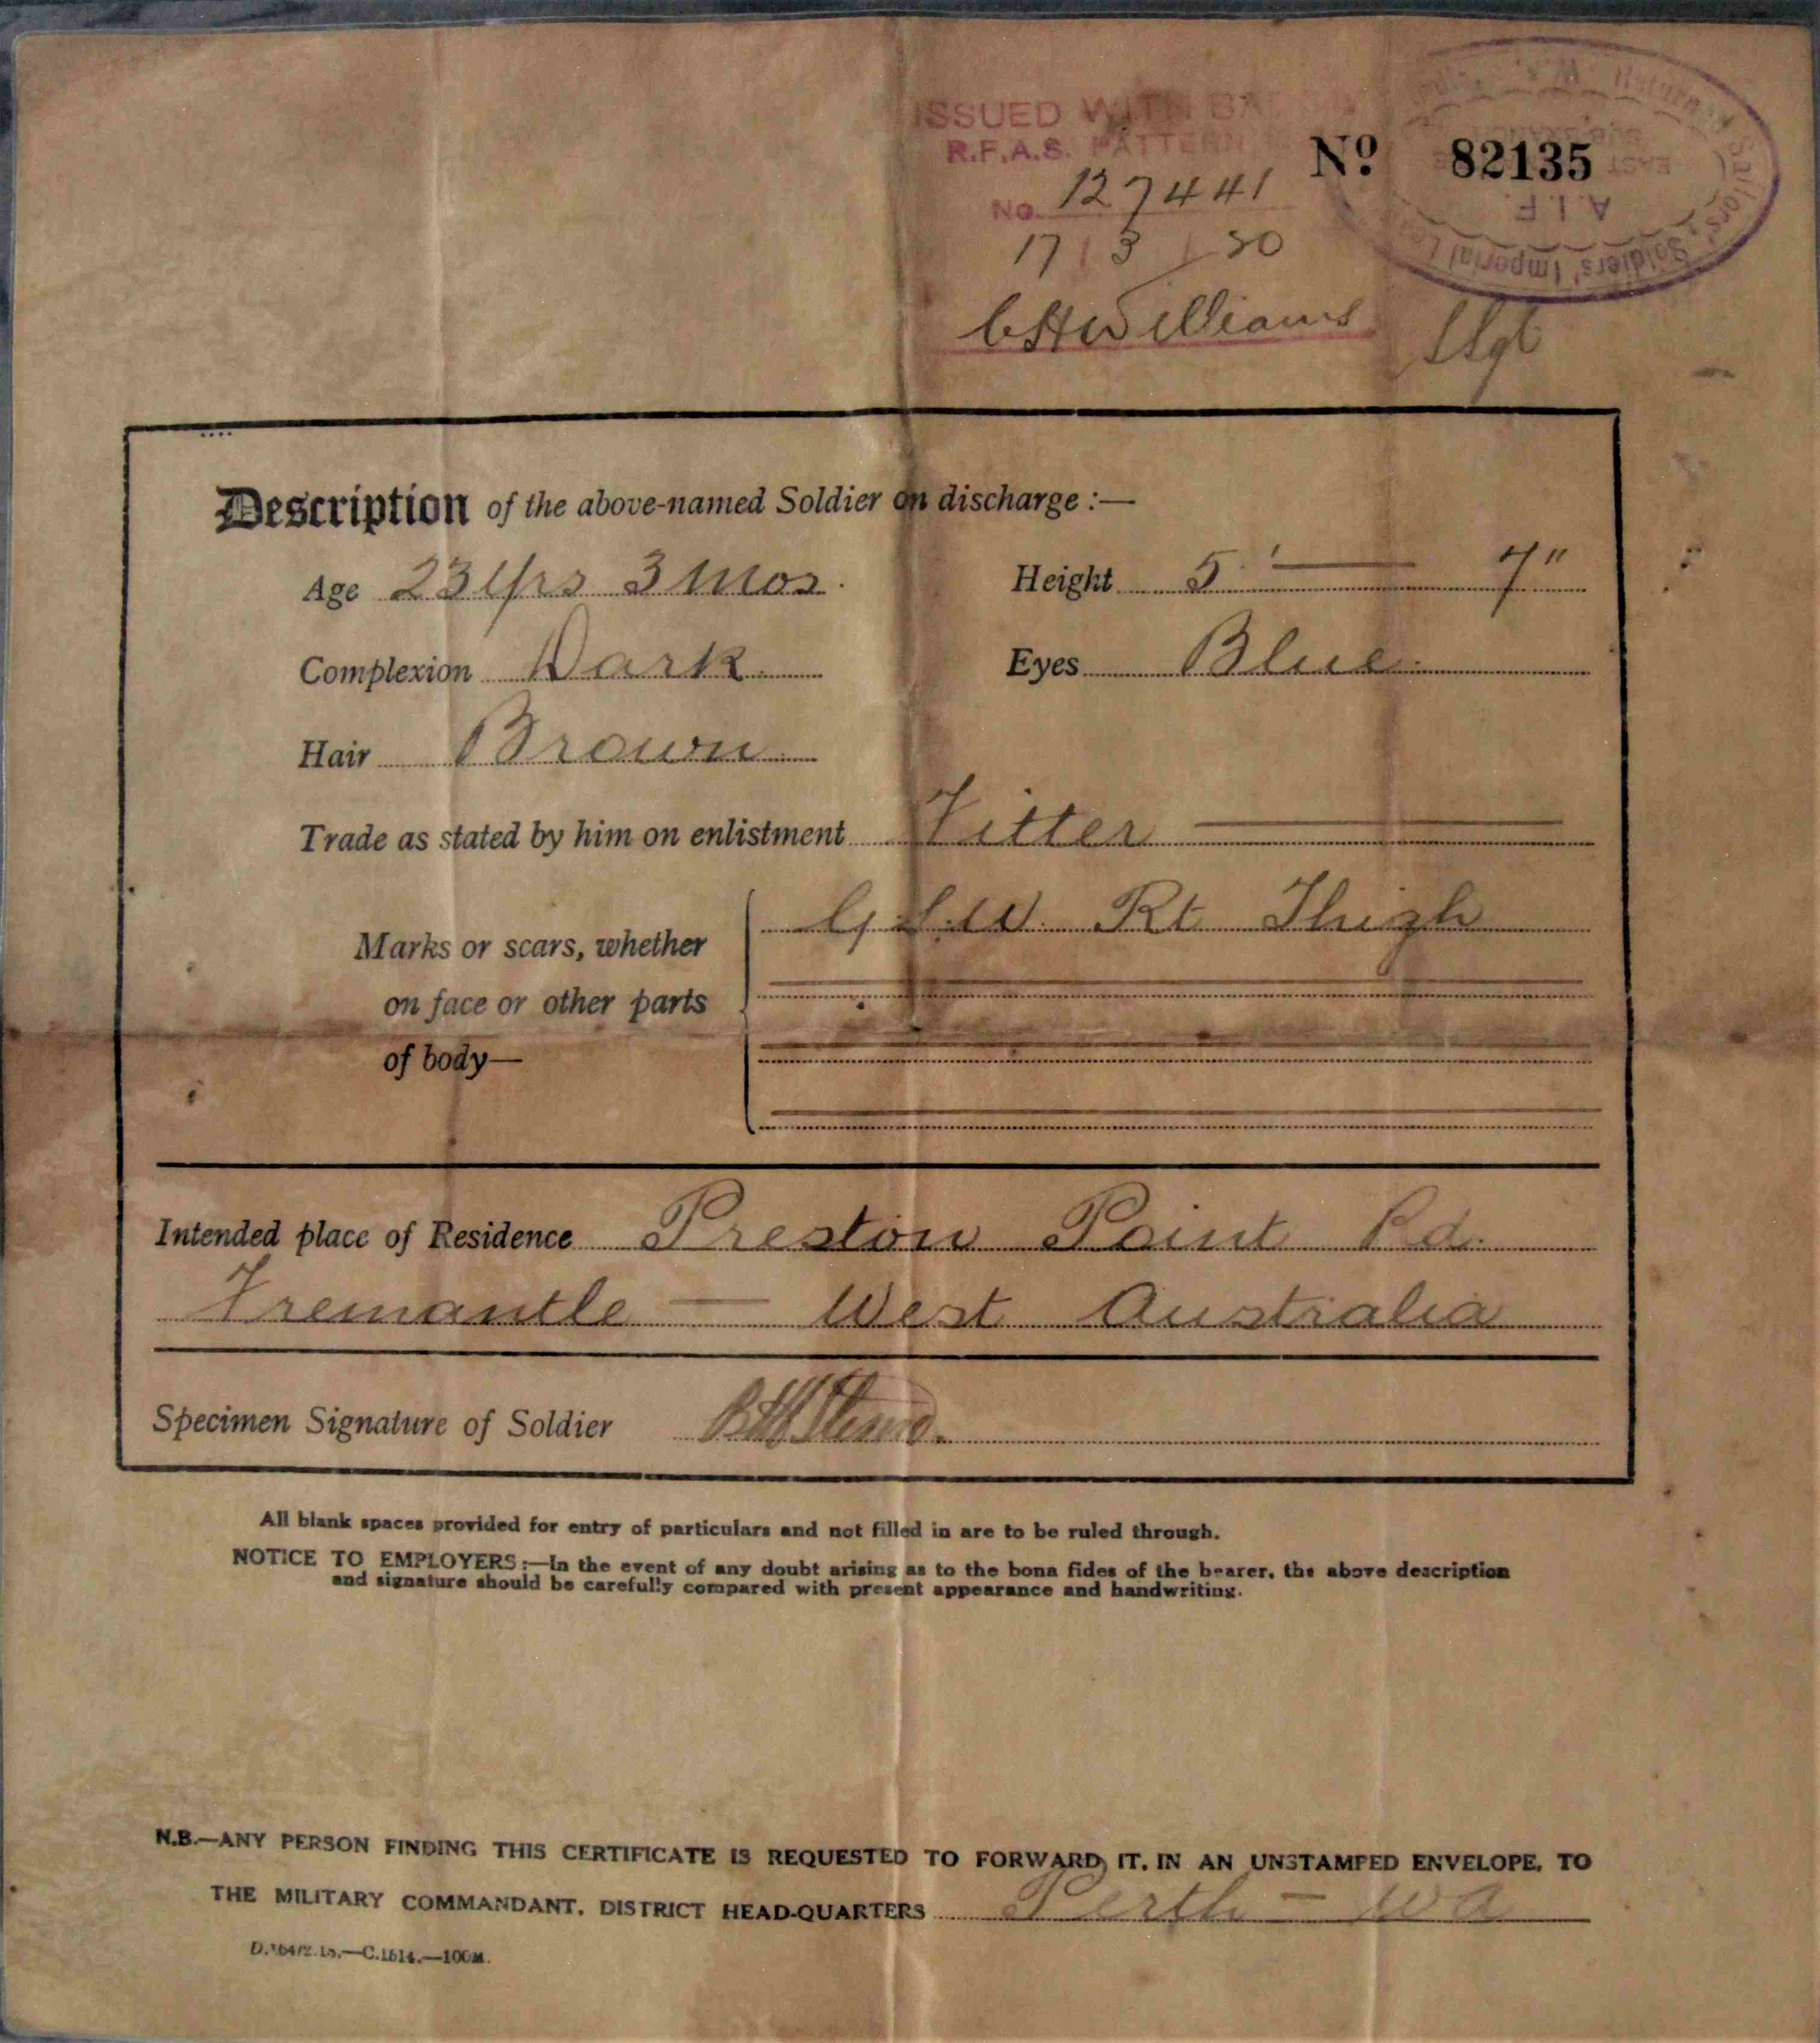 ISSUED WITH
R.F.A.S. PATTERN
No. 127441
No 82135
A.I.F.
Soldiers' Imperial
17 / 3 / 20
C H Williams Sgt
Description of the above-named Soldier on discharge :—
Age 23 Yrs 3 Mos. Height 5' — 7"
Complexion Dark Eyes Blue
Hair Brown
Trade as stated by him on enlistment Fitter
Marks or scars, whether G.S.W. Rt Thigh
on face or other parts
of body—
Intended place of Residence Preston Point Rd.
Fremantle — West Australia
Specimen Signature of Soldier
All blank spaces provided for entry of particulars and not filled in are to be ruled through.
NOTICE TO EMPLOYERS :—In the event of any doubt arising as to the bona fides of the bearer, the above description
and signature should be carefully compared with present appearance and handwriting.
N.B.—ANY PERSON FINDING THIS CERTIFICATE IS REQUESTED TO FORWARD IT, IN AN UNSTAMPED ENVELOPE, TO
THE MILITARY COMMANDANT, DISTRICT HEAD-QUARTERS Perth — WA
C.1614.—100M.